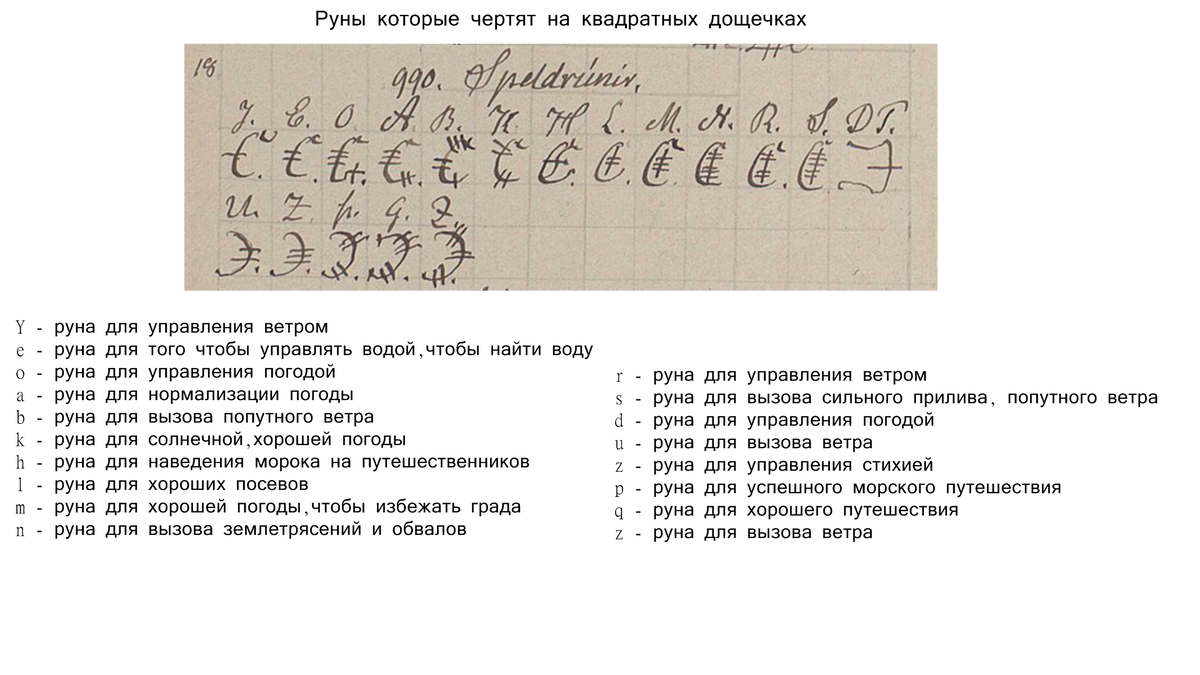 Руны которые чертят на квадратных дощечках
18
990. Speldrúnir.
J. E. O. A. B. K. H. L. M. N. R. S. D T.
U. Z. p. q. Z.
Y - руна для управления ветром
e - руна для того чтобы управлять водой,чтобы найти воду
o - руна для управления погодой
a - руна для нормализации погоды
b - руна для вызова попутного ветра
k - руна для солнечной,хорошей погоды
h - руна для наведения морока на путешественников
l - руна для хороших посевов
m - руна для хорошей погоды,чтобы избежать града
n - руна для вызова землетрясений и обвалов
r - руна для управления ветром
s - руна для вызова сильного прилива, попутного ветра
d - руна для управления погодой
u - руна для вызова ветра
z - руна для управления стихией
p - руна для успешного морского путешествия
q - руна для хорошего путешествия
z - руна для вызова ветра